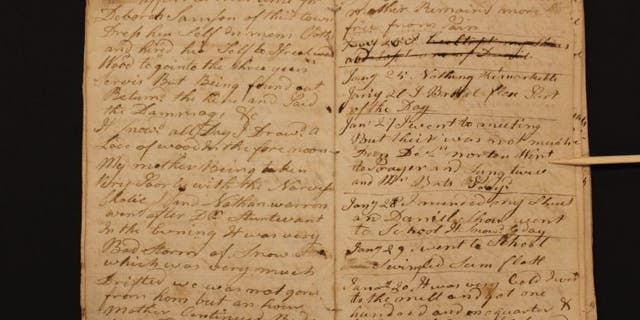 Deborah Samson of this town
Dress her Self in men's Cloth
and hired her Self to
to gointo the three years
Servis But Being found out
Returnd the hire and paid
the Damnag &c
It snow all Day I Draw a
Love of wood In the fore noon
My mother Being taken
Very Poorly with the Nervis
Colic and Nathan warren
went after Dr Sturtevant
In the Evning It was very
Bad Storm of Snow
which was very much
Drifted we was not gone
from hom but an hour
Mother Continued Bad
Mother Remains more
free from Pain
Jany 25 Nothing Remarkable
Jany 26 I Flax Part
of the Day
Jany 27 I went to meeting
But their was not much
Dea Norton Went
to Prayer and Sung twice
and Mr Bab
Jany 28 I my Shues
an Daniel Shaw went
to School It Snow to day
Jany 29 went to School
Swingled Sum flax
It was very Cold I went
to the mill and got one
hundred and one quarter &